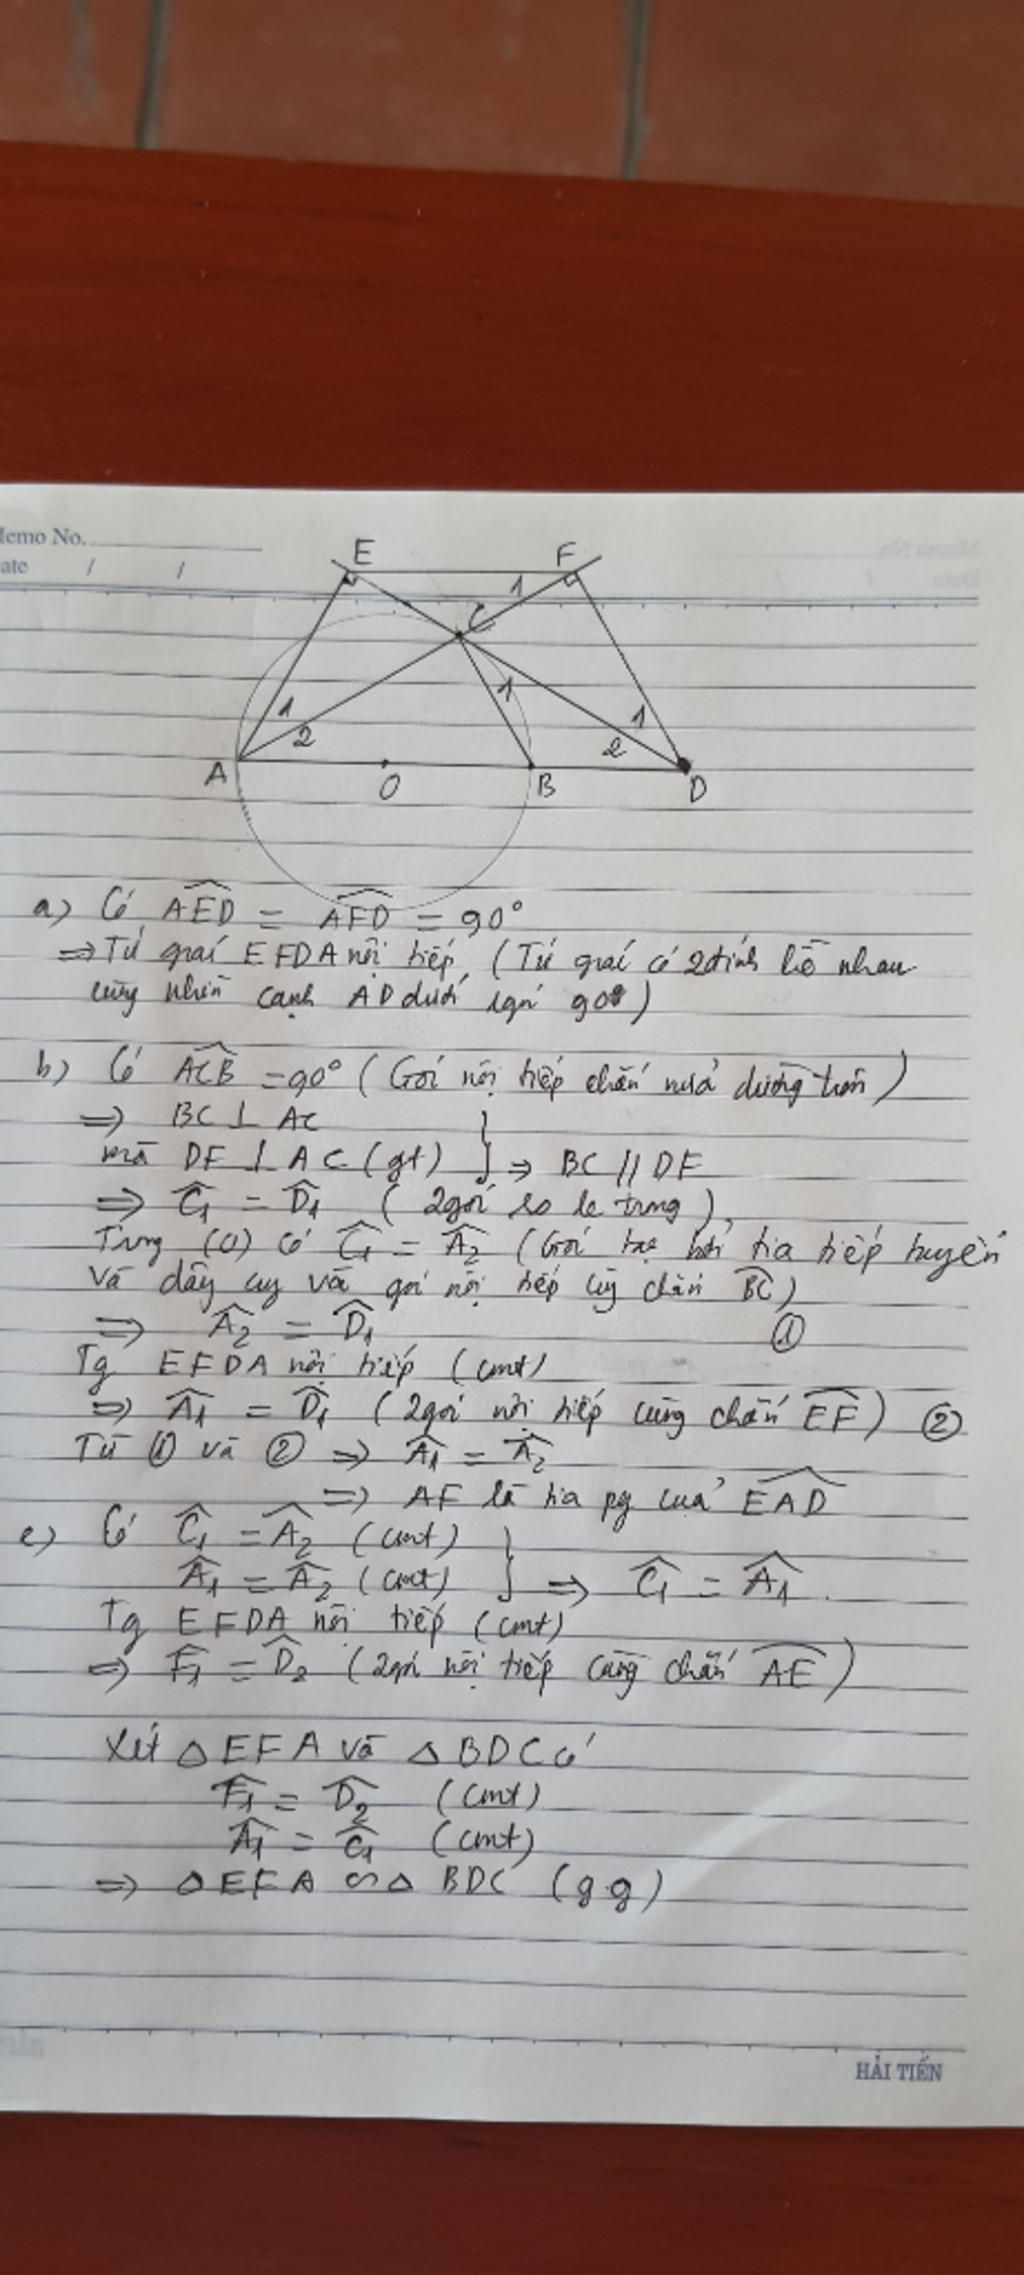 Memo No.
Date / /
E F
1
C
1
1 1
2 2
A O B D
a) Có AED = AFD = 90°
=> Tứ giác EFDA nội tiếp (Tứ giác có 2 đỉnh kề nhau
cùng nhìn cạnh AD dưới 1 góc 90°)
b) Có ACB = 90° (Góc nội tiếp chắn nửa đường tròn)
=> BC ⊥ AC
mà DF ⊥ AC (gt) } => BC // DF
=> C1 = D1 (2 góc so le trong)
Trong (O) có C1 = A2 (Góc tạo bởi tia tiếp tuyến
và dây cung và góc nội tiếp cùng chắn BC)
=> A2 = D1 ①
Tg EFDA nội tiếp (cmt)
=> A1 = D1 (2 góc nội tiếp cùng chắn EF) ②
Từ ① và ② => A1 = A2
=> AF là tia pg của EAD
c) Có C1 = A2 (cmt)
A1 = A2 (cmt) } => C1 = A1
Tg EFDA nội tiếp (cmt)
=> F1 = D2 (2 góc nội tiếp cùng chắn AE)
Xét △ EFA và △ BDC có
F1 = D2 (cmt)
A1 = C1 (cmt)
=> △ EFA ∽ △ BDC (g.g)
HẢI TIẾN